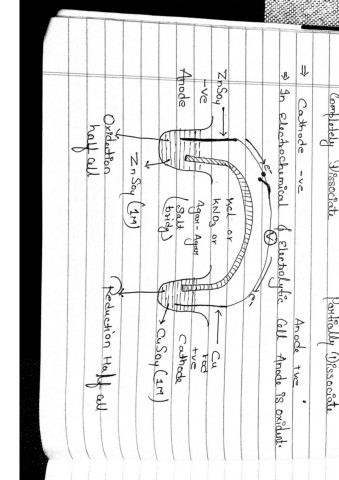 Completely Dissociate Partially Dissociate
⇒ Cathode -ve Anode +ve
⇒ In Electrochemical & Electrolytic Cell Anode is oxident.
e- V e-
ZnSoy Cu
-ve Kcl or rod
Anode KNO3 or +ve
Agar-Agar Cathode
(Salt
bridg)
ZnSoy (1M) CuSoy (1M)
Oxidation Reduction Half all
half all